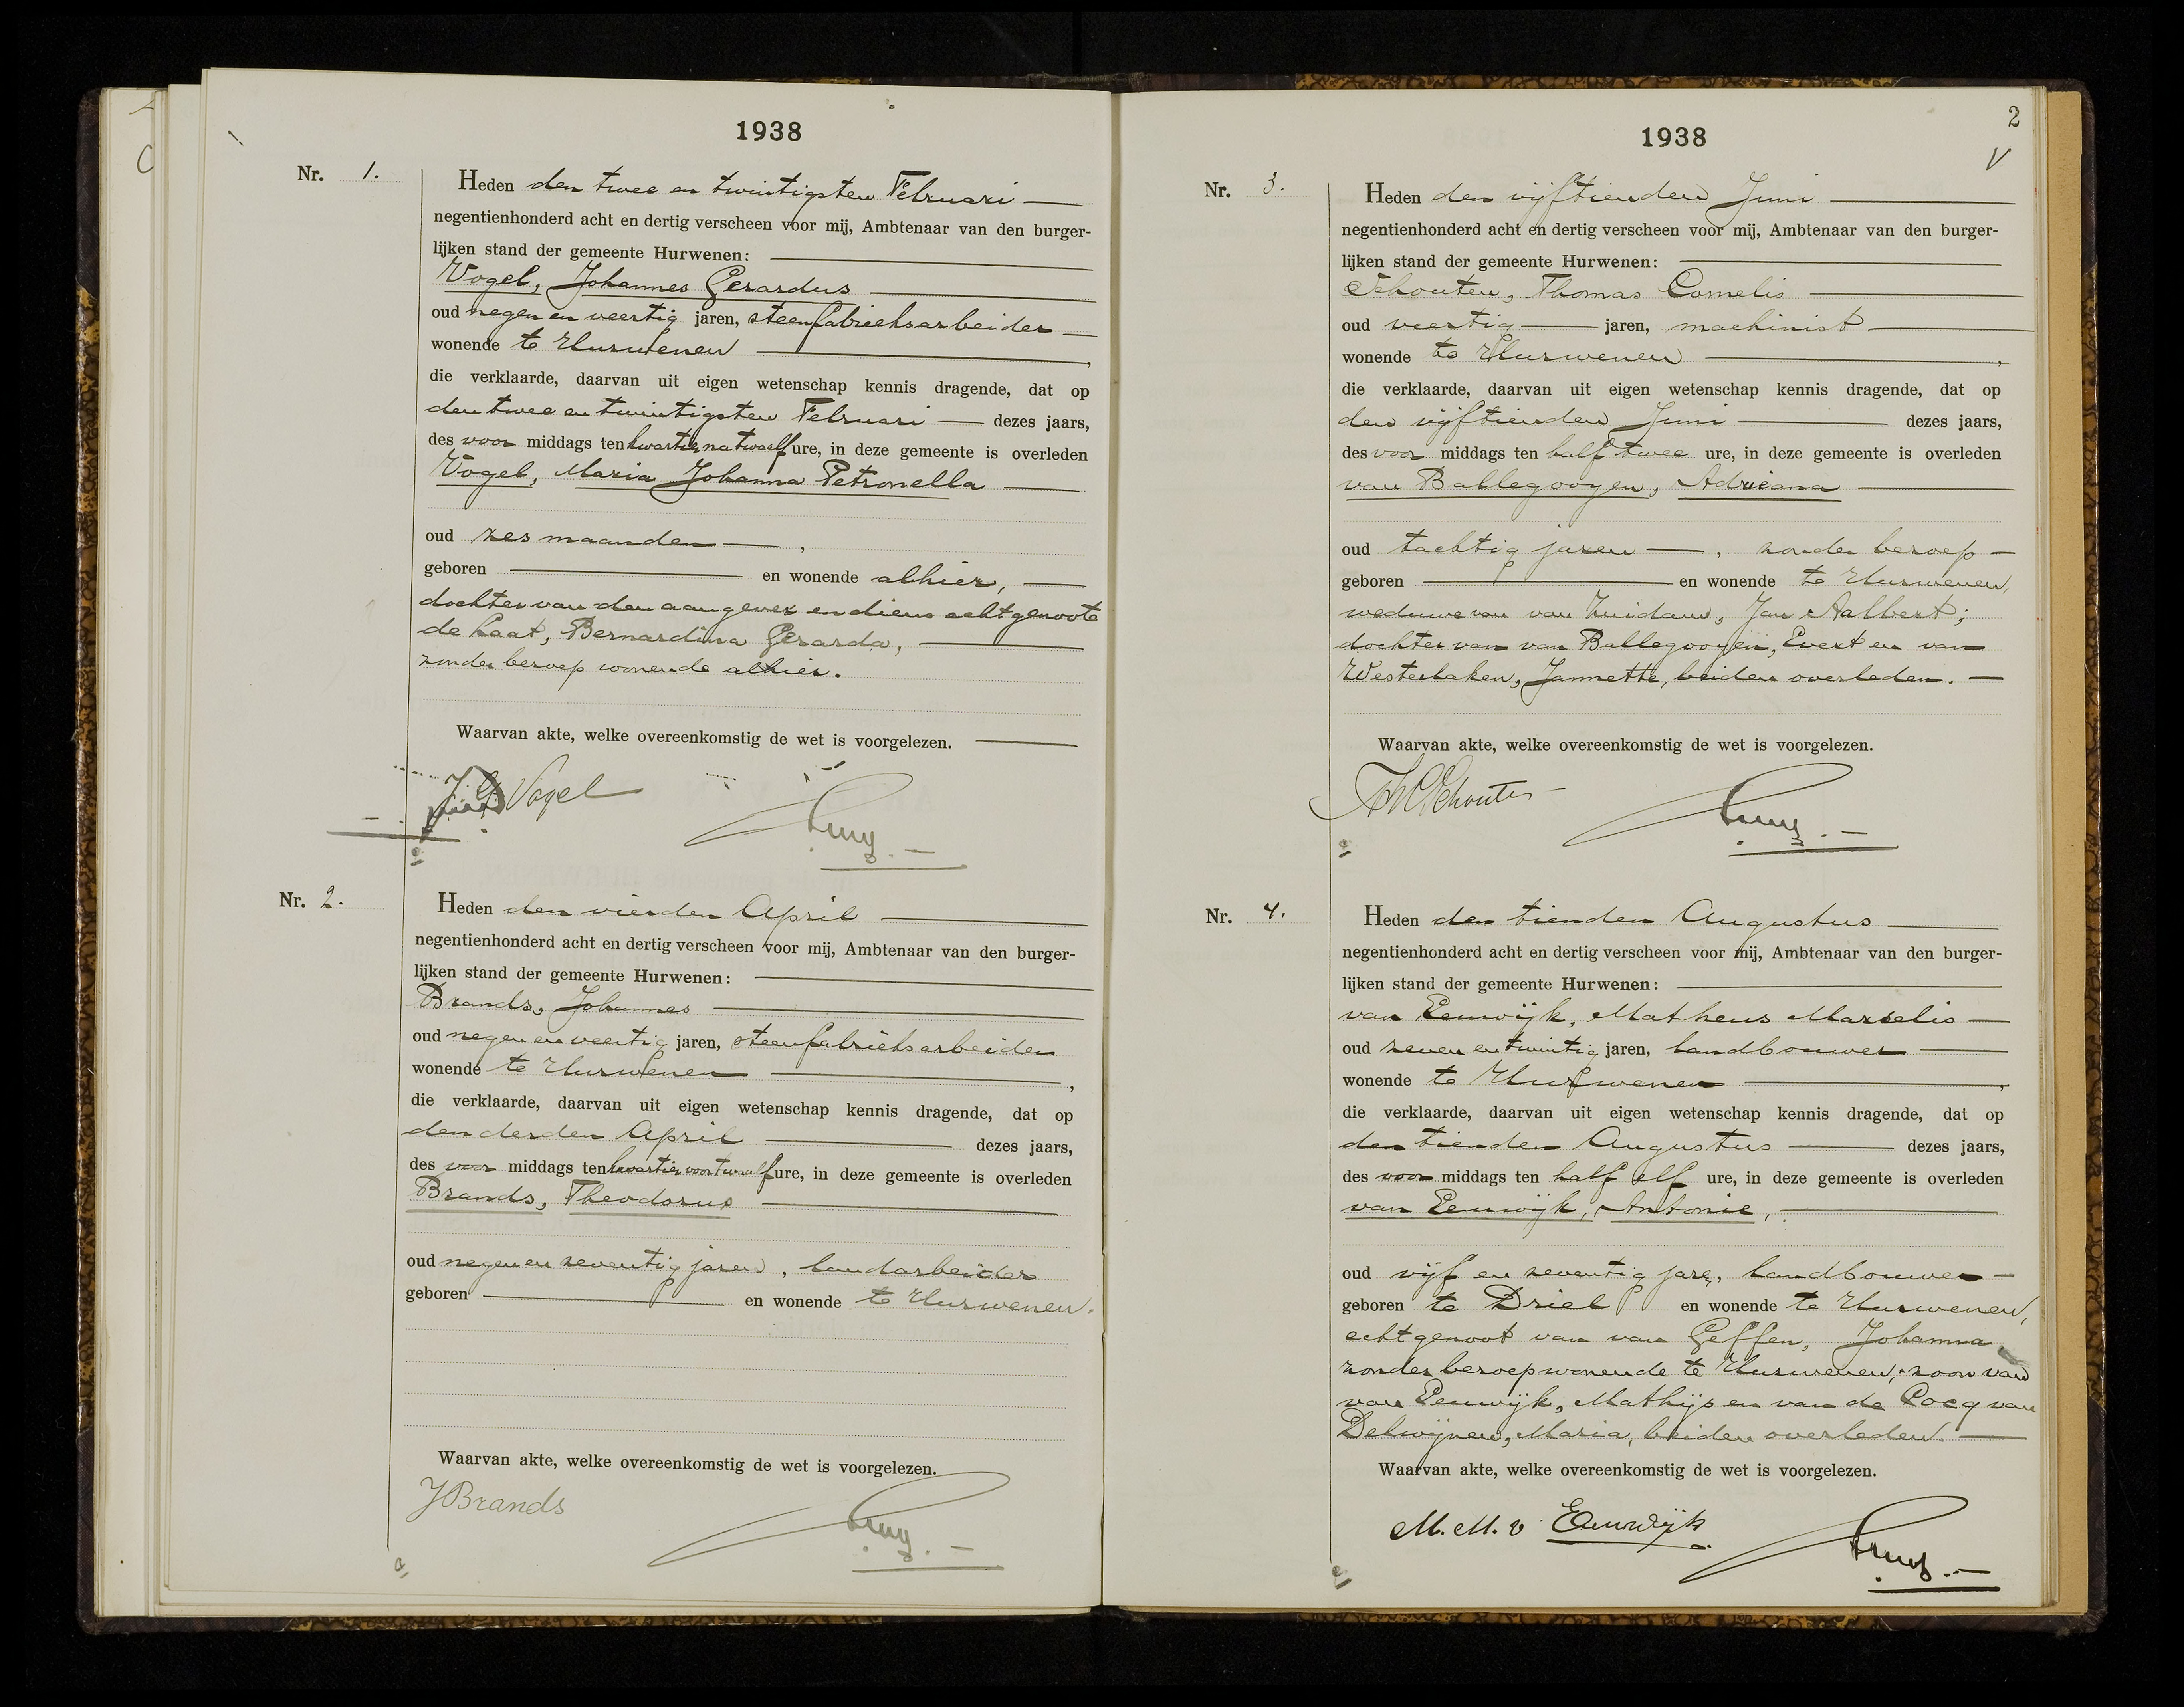 1938
Nr. 1.
Heden den twee en twintigsten Februari
negentienhonderd acht en dertig verscheen voor mij, Ambtenaar van den burger-
lijken stand der gemeente Hurwenen:
Vogel, Johannes Gerardus
oud negen en veertig jaren, steenfabrieksarbeider
wonende te Hurwenen,
die verklaarde, daarvan uit eigen wetenschap kennis dragende, dat op
den twee en twintigsten Februari dezes jaars,
des voor middags ten kwartier na twaalf ure, in deze gemeente is overleden
Vogel, Maria Johanna Petronella
oud zes maanden,
geboren en wonende alhier,
dochter van den aangever en diens echtgenoote
de Laat, Bernardina Gerarda,
zonder beroep wonende alhier.
Waarvan akte, welke overeenkomstig de wet is voorgelezen.
J G Vogel
Nr. 2.
Heden den vierden April
negentienhonderd acht en dertig verscheen voor mij, Ambtenaar van den burger-
lijken stand der gemeente Hurwenen:
Brands, Johannes
oud negen en veertig jaren, steenfabrieksarbeider
wonende te Hurwenen,
die verklaarde, daarvan uit eigen wetenschap kennis dragende, dat op
den derden April dezes jaars,
des voor middags ten kwartier voor twaalf ure, in deze gemeente is overleden
Brands, Theodorus
oud negen en zeventig jaren, landarbeider
geboren en wonende te Hurwenen.
Waarvan akte, welke overeenkomstig de wet is voorgelezen.
J Brands
2
V
1938
Nr. 3.
Heden den vijftienden Juni
negentienhonderd acht en dertig verscheen voor mij, Ambtenaar van den burger-
lijken stand der gemeente Hurwenen:
Schouten, Thomas Cornelis
oud veertig jaren, machinist
wonende te Hurwenen,
die verklaarde, daarvan uit eigen wetenschap kennis dragende, dat op
den vijftienden Juni dezes jaars,
des voor middags ten half twee ure, in deze gemeente is overleden
van Ballegooyen, Adriana
oud tachtig jaren, zonder beroep
geboren en wonende te Hurwenen,
weduwe van van Zuidam, Jan Aalbert;
dochter van van Ballegooyen, Evert en van
Westerlaken, Jannette, beiden overleden.
Waarvan akte, welke overeenkomstig de wet is voorgelezen.
Th C Schouten
Nr. 4.
Heden den tienden Augustus
negentienhonderd acht en dertig verscheen voor mij, Ambtenaar van den burger-
lijken stand der gemeente Hurwenen:
van Eeuwijk, Matheus Marselis
oud zeven en twintig jaren, landbouwer
wonende te Hurwenen,
die verklaarde, daarvan uit eigen wetenschap kennis dragende, dat op
den tienden Augustus dezes jaars,
des voor middags ten half elf ure, in deze gemeente is overleden
van Eeuwijk, Antonie,
oud vijf en zeventig jare, landbouwer
geboren te Driel en wonende te Hurwenen,
echtgenoot van van Geffen, Johanna
zonder beroep wonende te Hurwenen, zoon van
van Eeuwijk, Mathijs en van de Cocq van
Delwijnen, Maria, beiden overleden.
Waarvan akte, welke overeenkomstig de wet is voorgelezen.
M. M. v Eeuwijk